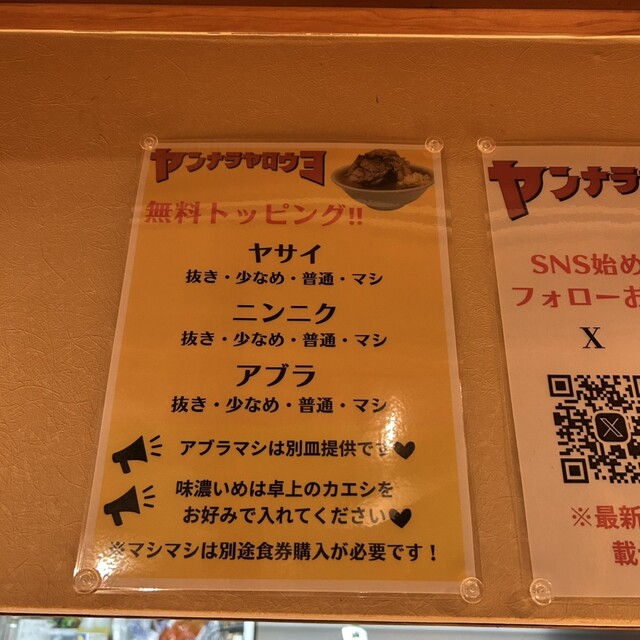 ヤンナラヤロウヨ
無料トッピング!!
ヤサイ
抜き・少なめ・普通・マシ
ニンニク
抜き・少なめ・普通・マシ
アブラ
抜き・少なめ・普通・マシ
アブラマシは別皿提供です
味濃いめは卓上のカエシを
お好みで入れてください
※マシマシは別途食券購入が必要です！
ヤンナラ
SNS始め
フォローお
X
※最新
載